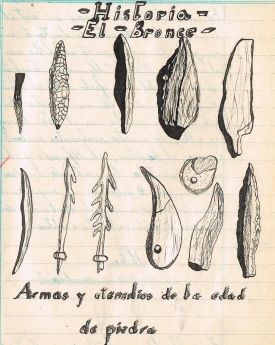 - Historia -
- El - Bronce -
Armas y utensilios de la edad
de piedra